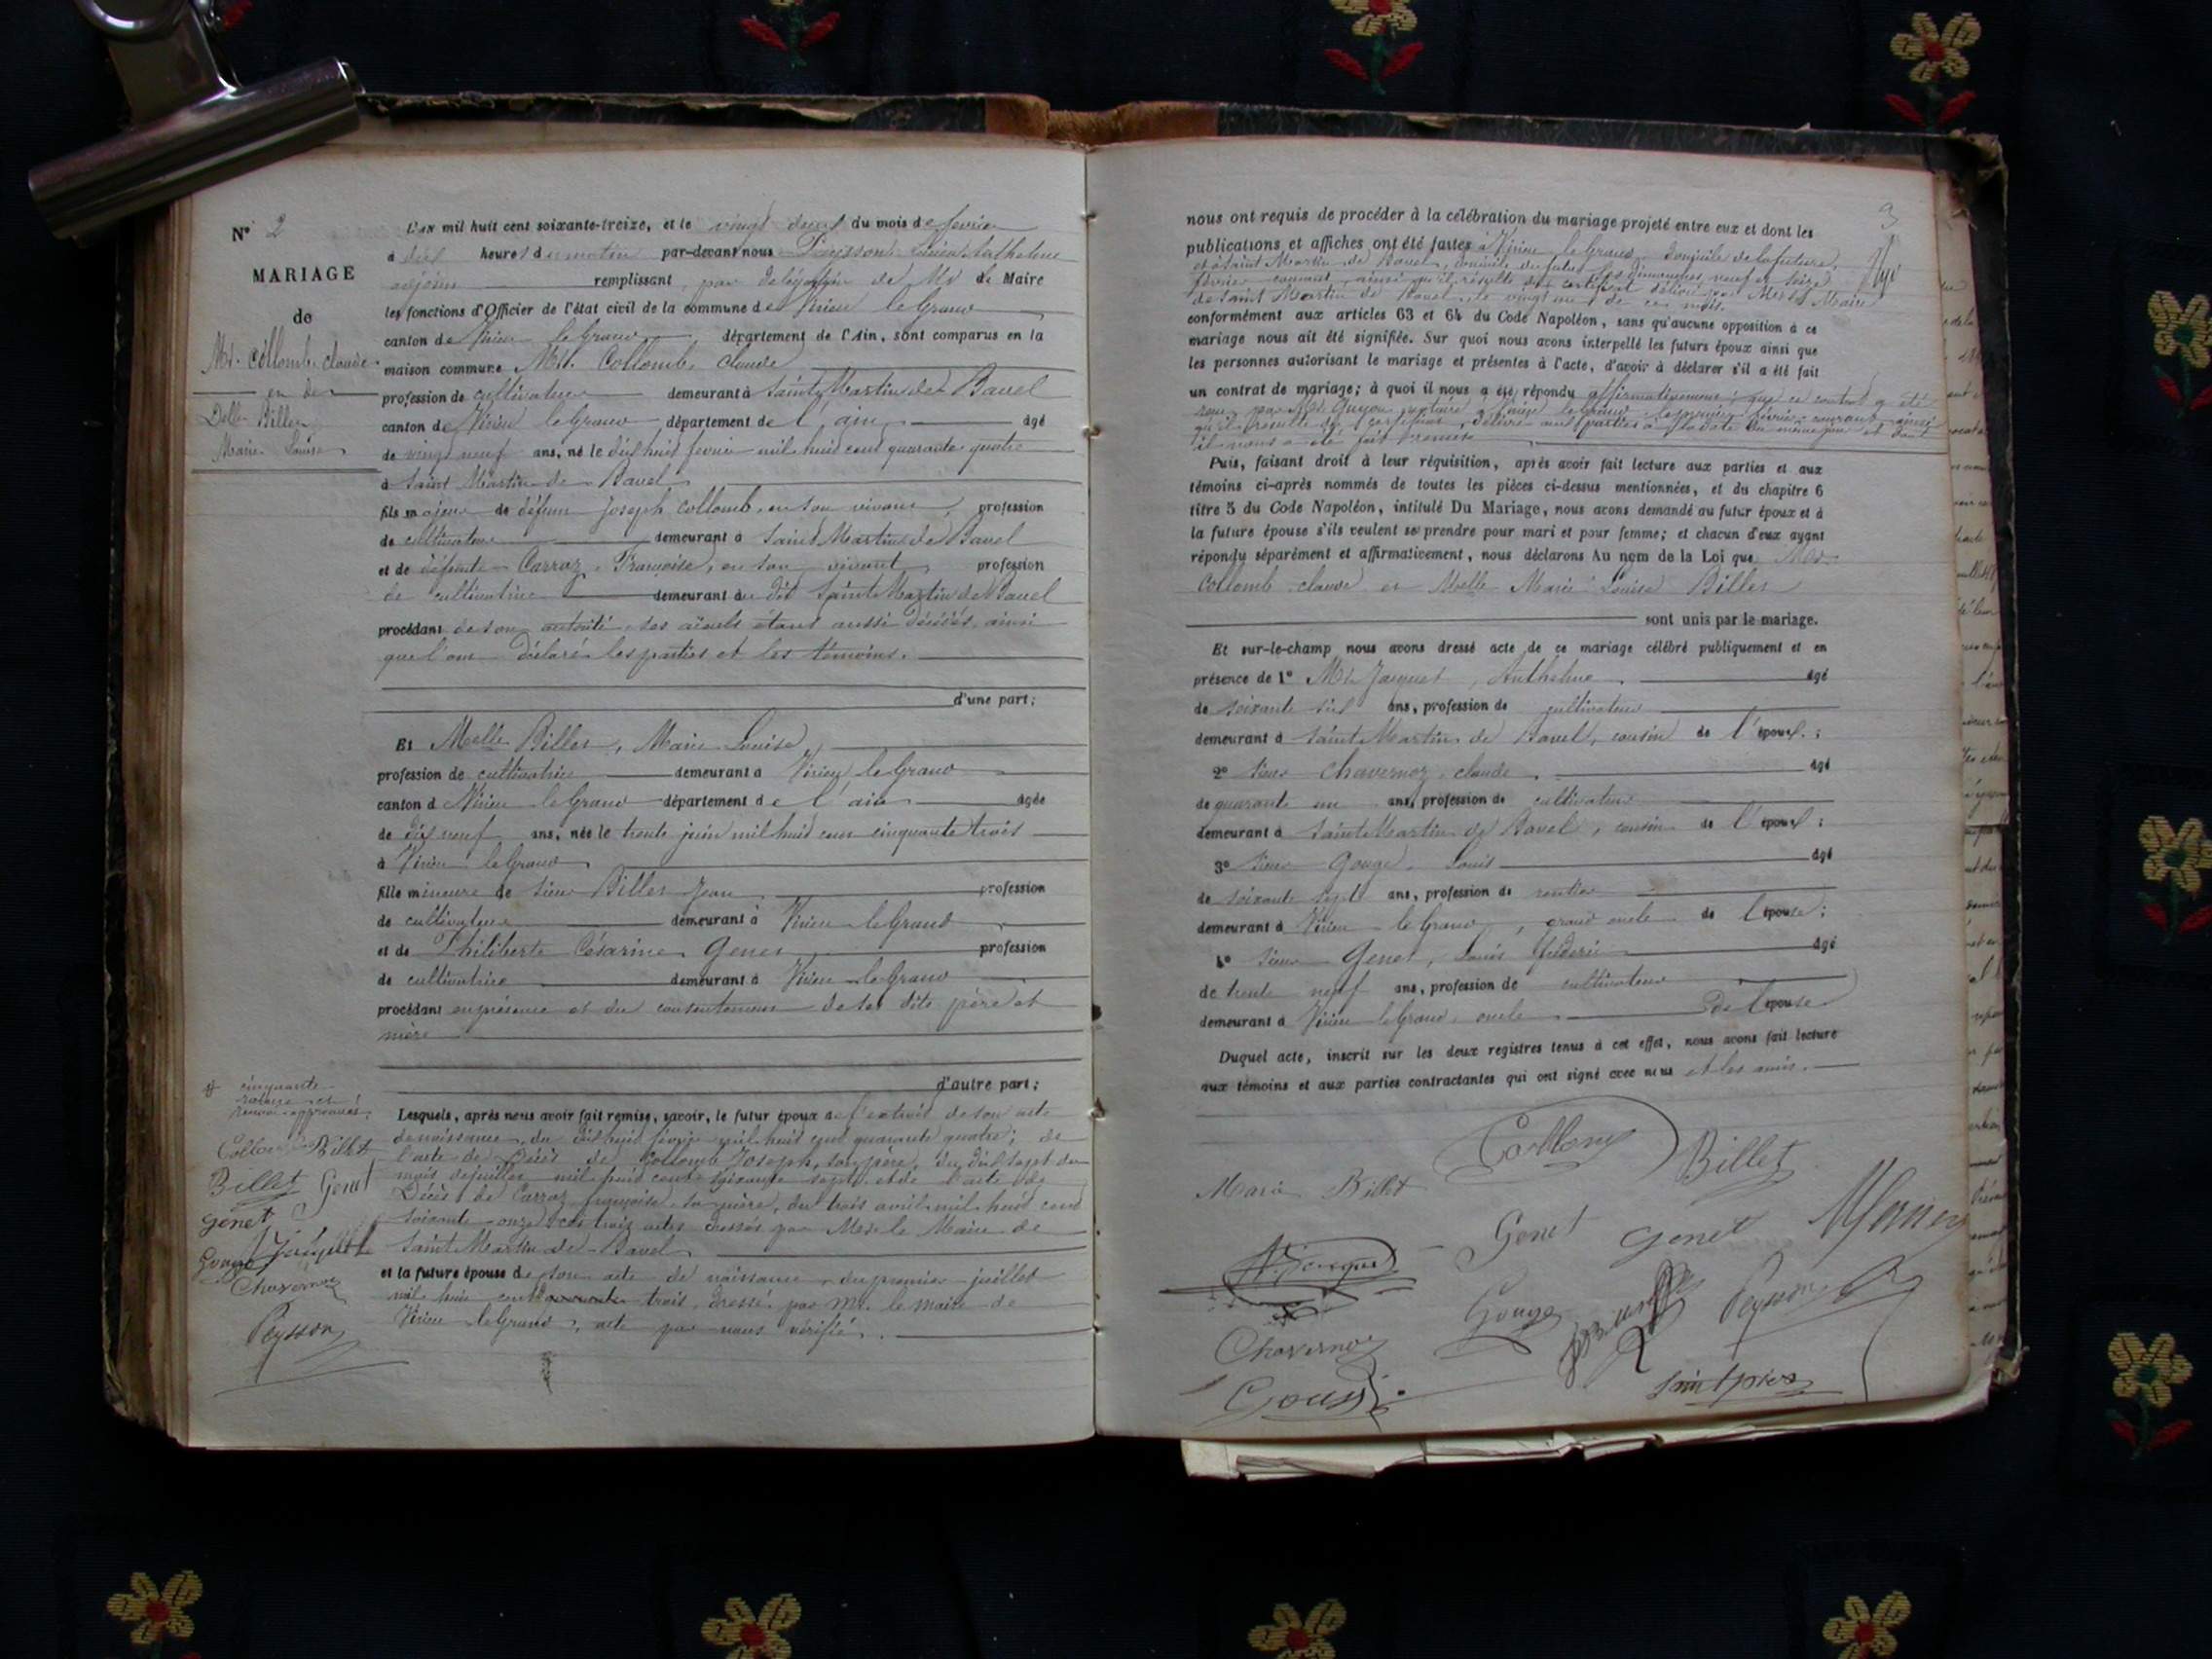 N° 2
MARIAGE
de
Mr. Collomb claude
et de
Delle Billet
Marie Louise
L'an mil huit cent soixante-treize, et le vingt deux du mois de fevrier
à dix heures du matin par-devant nous Peysson
adjoint remplissant, par délégation de Mr le Maire
les fonctions d'Officier de l'état civil de la commune de Virieu le Grand
canton de Virieu le Grand département de l'Ain, sont comparus en la
maison commune Mr. Collomb, claude
profession de cultivateur demeurant à Saint Martin de Bavel
canton de Virieu le Grand département de l'ain âgé
de vingt neuf ans, né le dix huit fevrier mil huit cent quarante quatre
à Saint Martin de Bavel
fils majeur de défunt Joseph Collomb, en son vivant, profession
de cultivateur demeurant à Saint Martin de Bavel
et de défunte Carraz, Françoise, en son vivant, profession
de cultivatrice demeurant au dit Saint Martin de Bavel
procédant de son autorité, ses aïeuls étant aussi décédés, ainsi
que l'ont déclaré les parties et les témoins.
d'une part;
Et Melle Billet, Marie Louise
profession de cultivatrice demeurant à Virieu le Grand
canton d Virieu le Grand département de l'ain âgée
de dix neuf ans, née le trente juin mil huit cent cinquante trois
à Virieu le Grand
fille mineure de sieur Billet Jean profession
de cultivateur demeurant à Virieu le Grand
et de Philiberte Césarine Genet profession
de cultivatrice demeurant à Virieu le Grand
procédant en présence et du consentement de ses dits père et
mère
d'autre part;
Lesquels, après nous avoir fait remise, savoir, le futur époux de l'extrait de son acte
de naissance, du dix huit février mil huit cent quarante quatre; de
l'acte de décès de Collomb Joseph, son père, du dix sept du
mois de juillet mil huit cent soixante sept et de l'acte de
Décès de Carraz françoise, sa mère, du trois avril mil huit cent
soixante onze, ces trois actes dressés par Mr le Maire de
Saint Martin de Bavel
et la future épouse de son acte de naissance, du premier juillet
mil huit cent quarante trois, dressé par Mr. le maire de
Virieu le Grand, acte par nous vérifié.
cinquante
rature et
renvoi approuvés.
Collomb Billet
Billet Genet
Genet
Gouge Jacquet
Chavernoz
Peysson
3
nous ont requis de procéder à la célébration du mariage projeté entre eux et dont les
publications et affiches ont été faites à Virieu le Grand domicile de la future,
et à Saint Martin de Bavel, domicile du futur les dimanches neuf et seize
février courant, ainsi qu'il résulte du certificat délivré par Mr le Maire
de Saint Martin de Bavel, le vingt un de ce mois.
conformément aux articles 63 et 64 du Code Napoléon, sans qu'aucune opposition à ce
mariage nous ait été signifiée. Sur quoi nous avons interpellé les futurs époux ainsi que
les personnes autorisant le mariage et présentes à l'acte, d'avoir à déclarer s'il a été fait
un contrat de mariage; à quoi il nous a été répondu affirmativement; que ce contrat a été
reçu par Me Guyon notaire à Virieu le Grand le premier février courant, ainsi
qu'il résulte du certificat délivré aux parties à la date du même jour et dont
il nous a été fait remise
Puis, faisant droit à leur réquisition, après avoir fait lecture aux parties et aux
témoins ci-après nommés de toutes les pièces ci-dessus mentionnées, et du chapitre 6
titre 5 du Code Napoléon, intitulé Du Mariage, nous avons demandé au futur époux et à
la future épouse s'ils veulent se prendre pour mari et pour femme; et chacun d'eux ayant
répondu séparément et affirmativement, nous déclarons Au nom de la Loi que Mr
Collomb claude et Melle Marie Louise Billet
sont unis par le mariage.
Et sur-le-champ nous avons dressé acte de ce mariage célébré publiquement et en
présence de 1° Mr Jacquet, Anthelme âgé
de soixante six ans, profession de cultivateur
demeurant à Saint Martin de Bavel, cousin de l'époux;
2° Sieur Chavernoz, claude âgé
de quarante un ans, profession de cultivateur
demeurant à Saint Martin de Bavel, cousin de l'époux;
3° Sieur Gouge, Louis âgé
de soixante sept ans, profession de rentier
demeurant à Virieu le Grand, grand oncle de l'épouse;
4° Sieur Genet, Louis fréderic âgé
de trente neuf ans, profession de cultivateur
demeurant à Virieu le Grand, oncle de l'épouse
Duquel acte, inscrit sur les deux registres tenus à cet effet, nous avons fait lecture
aux témoins et aux parties contractantes qui ont signé avec nous et les amis.
Collomb
Marie Billet Billet
Genet Genet
A. Jacquet
Gouge Peysson
Chavernoz